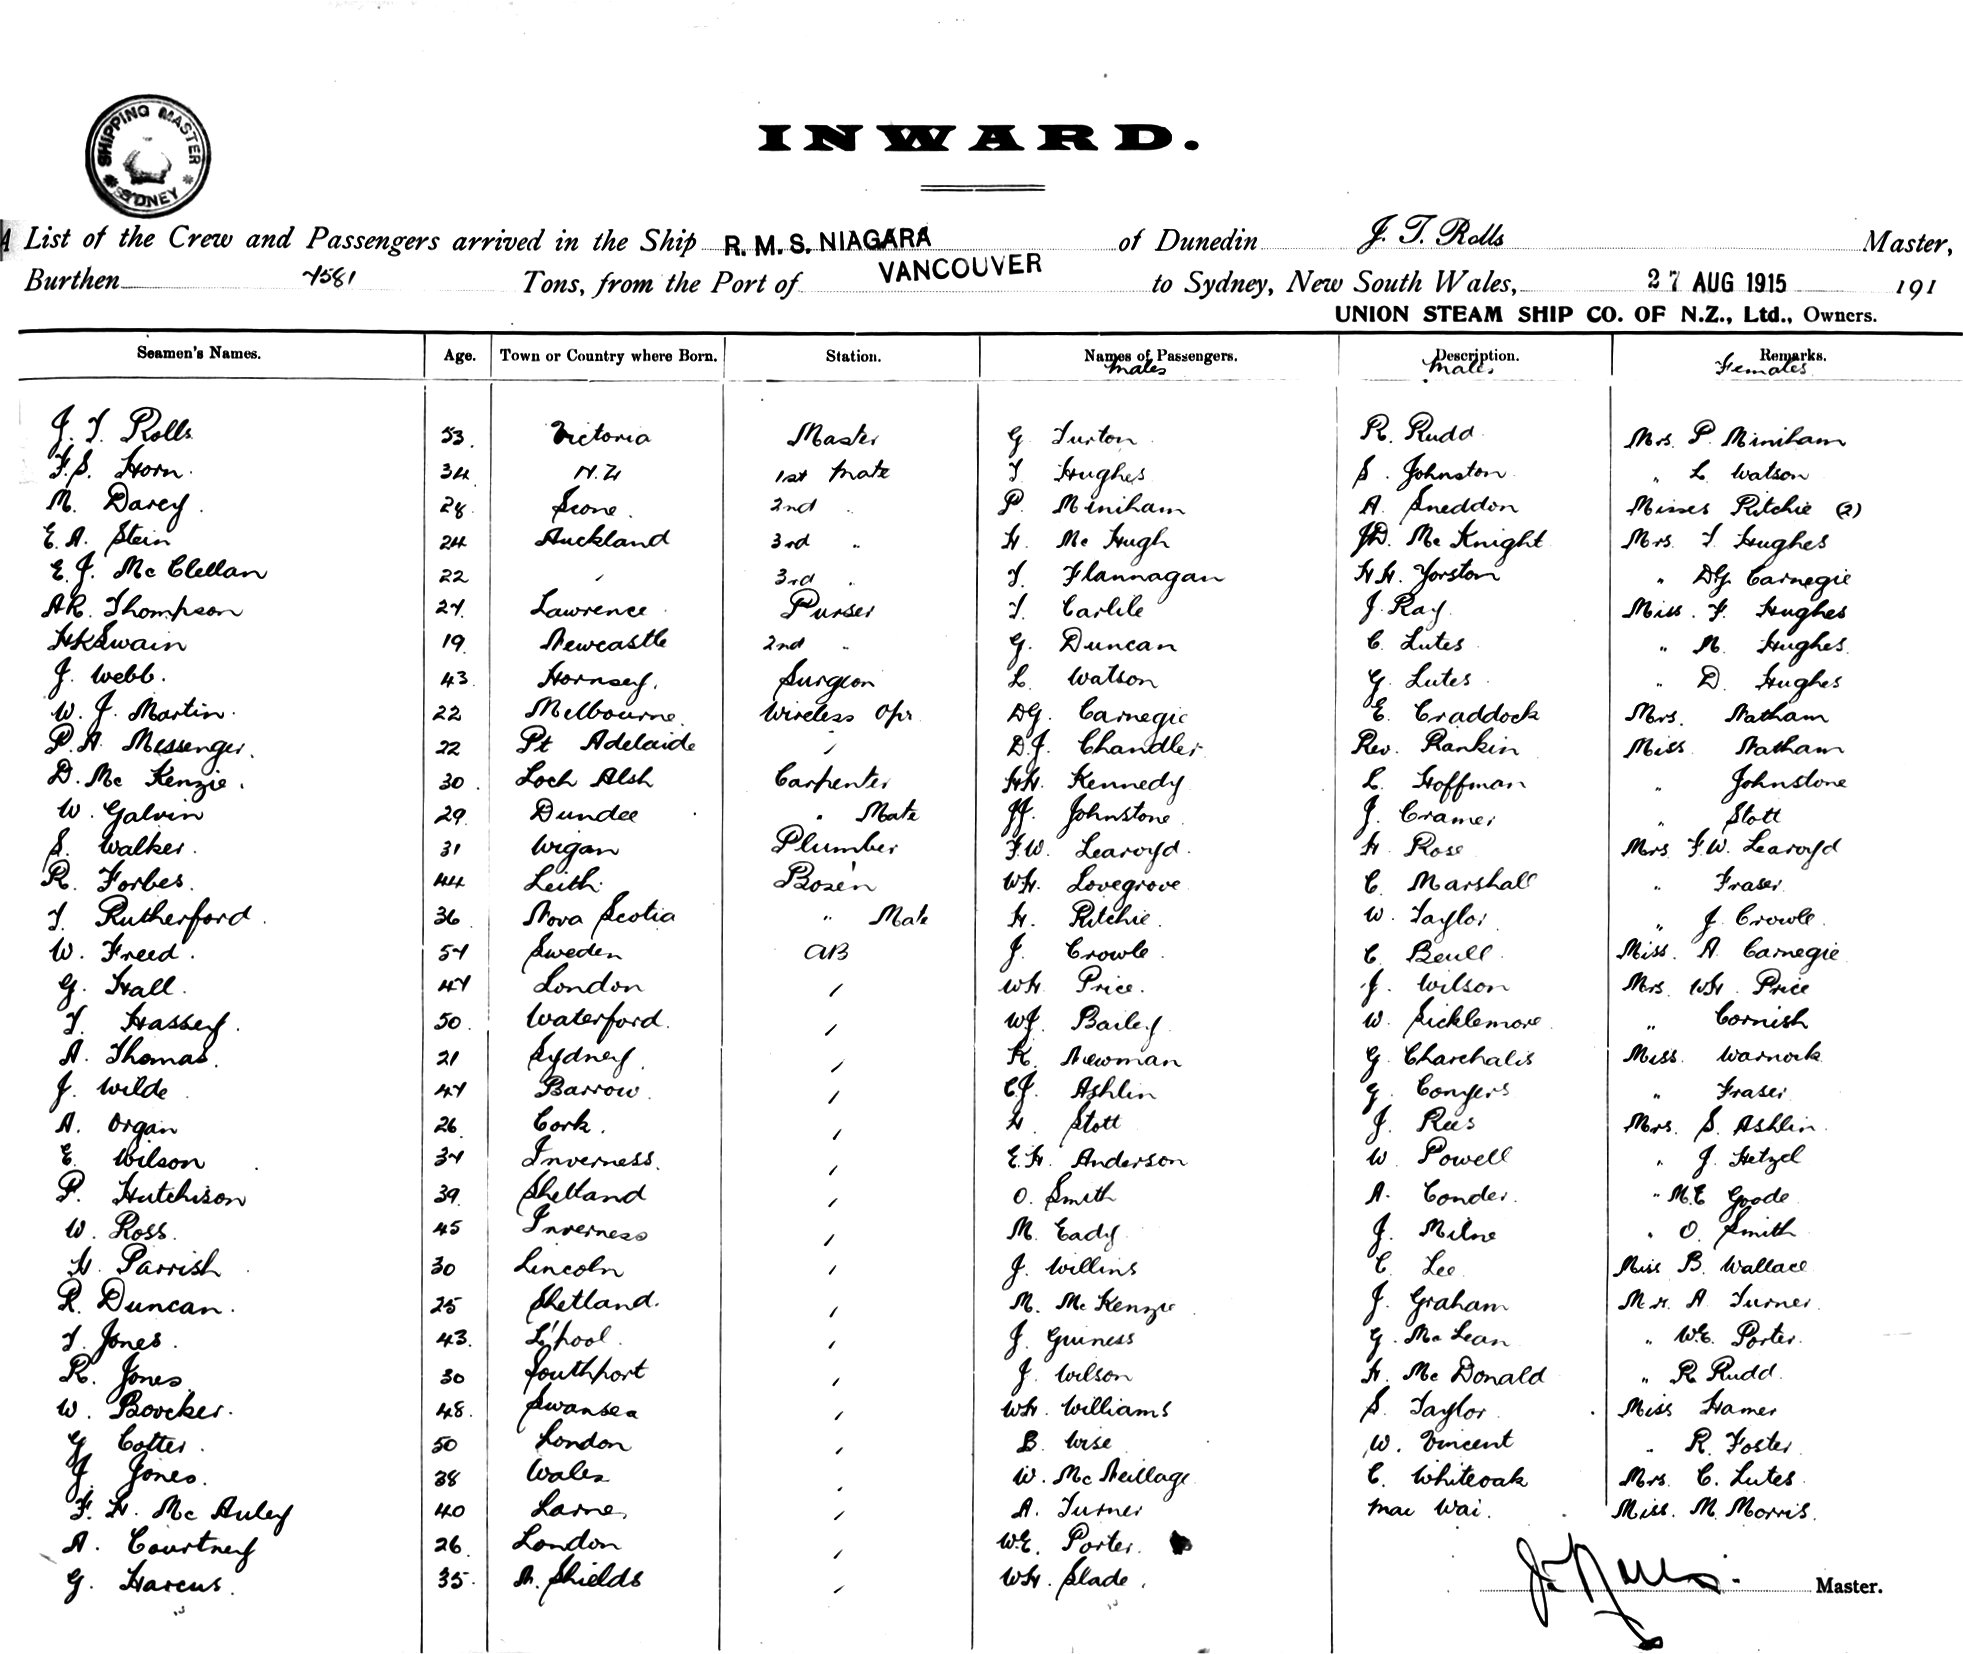 SHIPPING MASTER SYDNEY
INWARD.
A List of the Crew and Passengers arrived in the Ship R. M. S. NIAGARA of Dunedin J. T. Rolls Master,
Burthen 7581 Tons, from the Port of VANCOUVER to Sydney, New South Wales, 27 AUG 1915 191
UNION STEAM SHIP CO. OF N.Z., Ltd., Owners.
Seamen's Names. Age. Town or Country where Born. Station. Names of Passengers. Description. Remarks.
Males Males Females
J. T. Rolls 53. Victoria Master G Turton R. Rudd Mrs. P. Miniham
F. S. Horn. 34 N.Z 1st Mate T Hughes S. Johnston " L Watson
M. Darcy. 28 Scone. 2nd " P. Miniham A. Sneddon Misses Ritchie (2)
E. A. Stein 24 Auckland 3rd " H. Mc Hugh JD. Mc Knight Mrs. T. Hughes
E. J. Mc Clellan 22 " 3rd " T. Flannagan H H. Yorston " DG. Carnegie
AR. Thompson 27. Lawrence Purser T. Carlile J. Ray. Miss. F. Hughes
HKSwain 19. Newcastle 2nd " G. Duncan C. Lutes " M. Hughes.
J. Webb. 43. Hornsey. Surgeon L. Watson G. Lutes " D. Hughes
W. J. Martin. 22 Melbourne. Wireless Opr DG. Carnegie E. Craddock Mrs. Natham
P. A. Messenger. 22 Pt Adelaide " D.J. Chandler Rev. Rankin Miss Natham
D. Mc Kenzie. 30. Loch Alsh Carpenter HH. Kennedy L. Hoffman " Johnstone
W. Galvin 29. Dundee " Mate JJ. Johnstone J. Cramer " Stott
S. Walker. 31 Wigan Plumber F.W. Learoyd. H. Rose Mrs F.W. Learoyd
R. Forbes. 44 Leith. Bosen WH. Lovegrove C. Marshall " Fraser
T. Rutherford. 36 Nova Scotia " Mate H. Ritchie. W. Taylor " J. Crowle
W. Freed. 57 Sweden AB J. Crowle C. Beull Miss. A. Carnegie
G. Hall. 47 London " WH Price. J. Wilson Mrs. WH. Price
T. Hassey. 50. Waterford. " WJ. Bailey W. Sicklemore " Cornish
A. Thomas. 21 Sydney. " K. Newman G Charchalis Miss. Warnock
J. Wilde 47 Barrow. " CJ. Ashlin G. Conyers " Fraser
A. Organ 26 Cork. " H. Stott J. Rees Mrs. S. Ashlin.
E. Wilson 37 Inverness. " E.H. Anderson W Powell " J. Hetzel
P. Hutchison 39. Shetland " O. Smith A. Conder. " M.E Goode
W. Ross. 45 Inverness " M. Eady J. Milne " O. Smith
H. Parrish 30 Lincoln " J. Willins C. Lee Miss B. Wallace
R. Duncan. 25 Shetland. " M. Mc Kenzie J. Graham Mrs. A Turner.
T. Jones. 43. L'pool. " J. Guiness G. Mc Lean " W.E. Porter.
R. Jones 30 Southport " J. Wilson H. Mc Donald " R Rudd.
W. Boocker. 48. Swansea " WH. Williams S. Taylor. Miss Hamer
G Cotter. 50 London " B. Wise W. Vincent " R. Foster
J. Jones. 38 Wales " W. Mc Neillage C. Whiteoak Mrs. C. Lutes
F. H. Mc Auley 40 Larne. " A. Turner Mac Wai. Miss. M. Morris.
A. Courtney 26. London " W.E. Porter.
G. Harcus. 35. N. Shields " WH. Slade.
J. T. Rolls. Master.